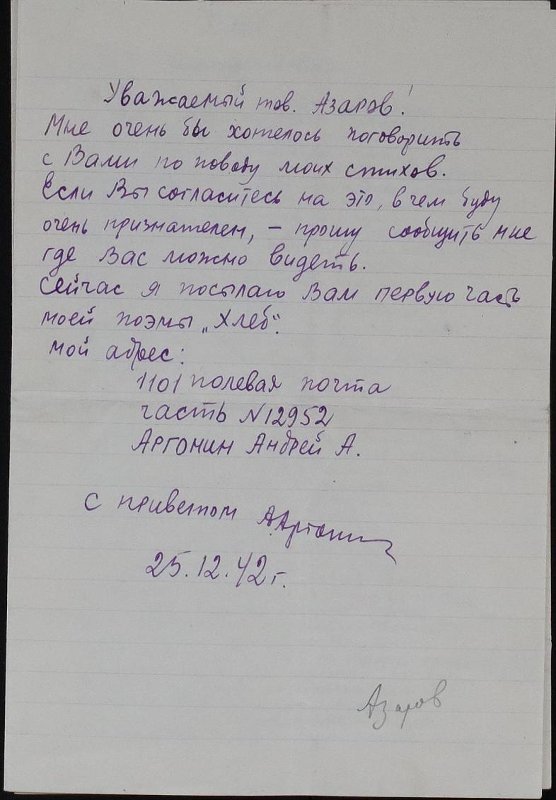 Уважаемый тов. Азаров!
Мне очень бы хотелось поговорить
с Вами по поводу моих стихов.
Если Вы согласитесь на это, в чем буду
очень признателен, – прошу сообщить мне
где Вас можно видеть.
Сейчас я посылаю Вам первую часть
моей поэмы „Хлеб".
Мой адрес:
1101 полевая почта
часть №12952
Аргонин Андрей А.
С приветом А.Аргонин
25.12.42 г.
Азаров